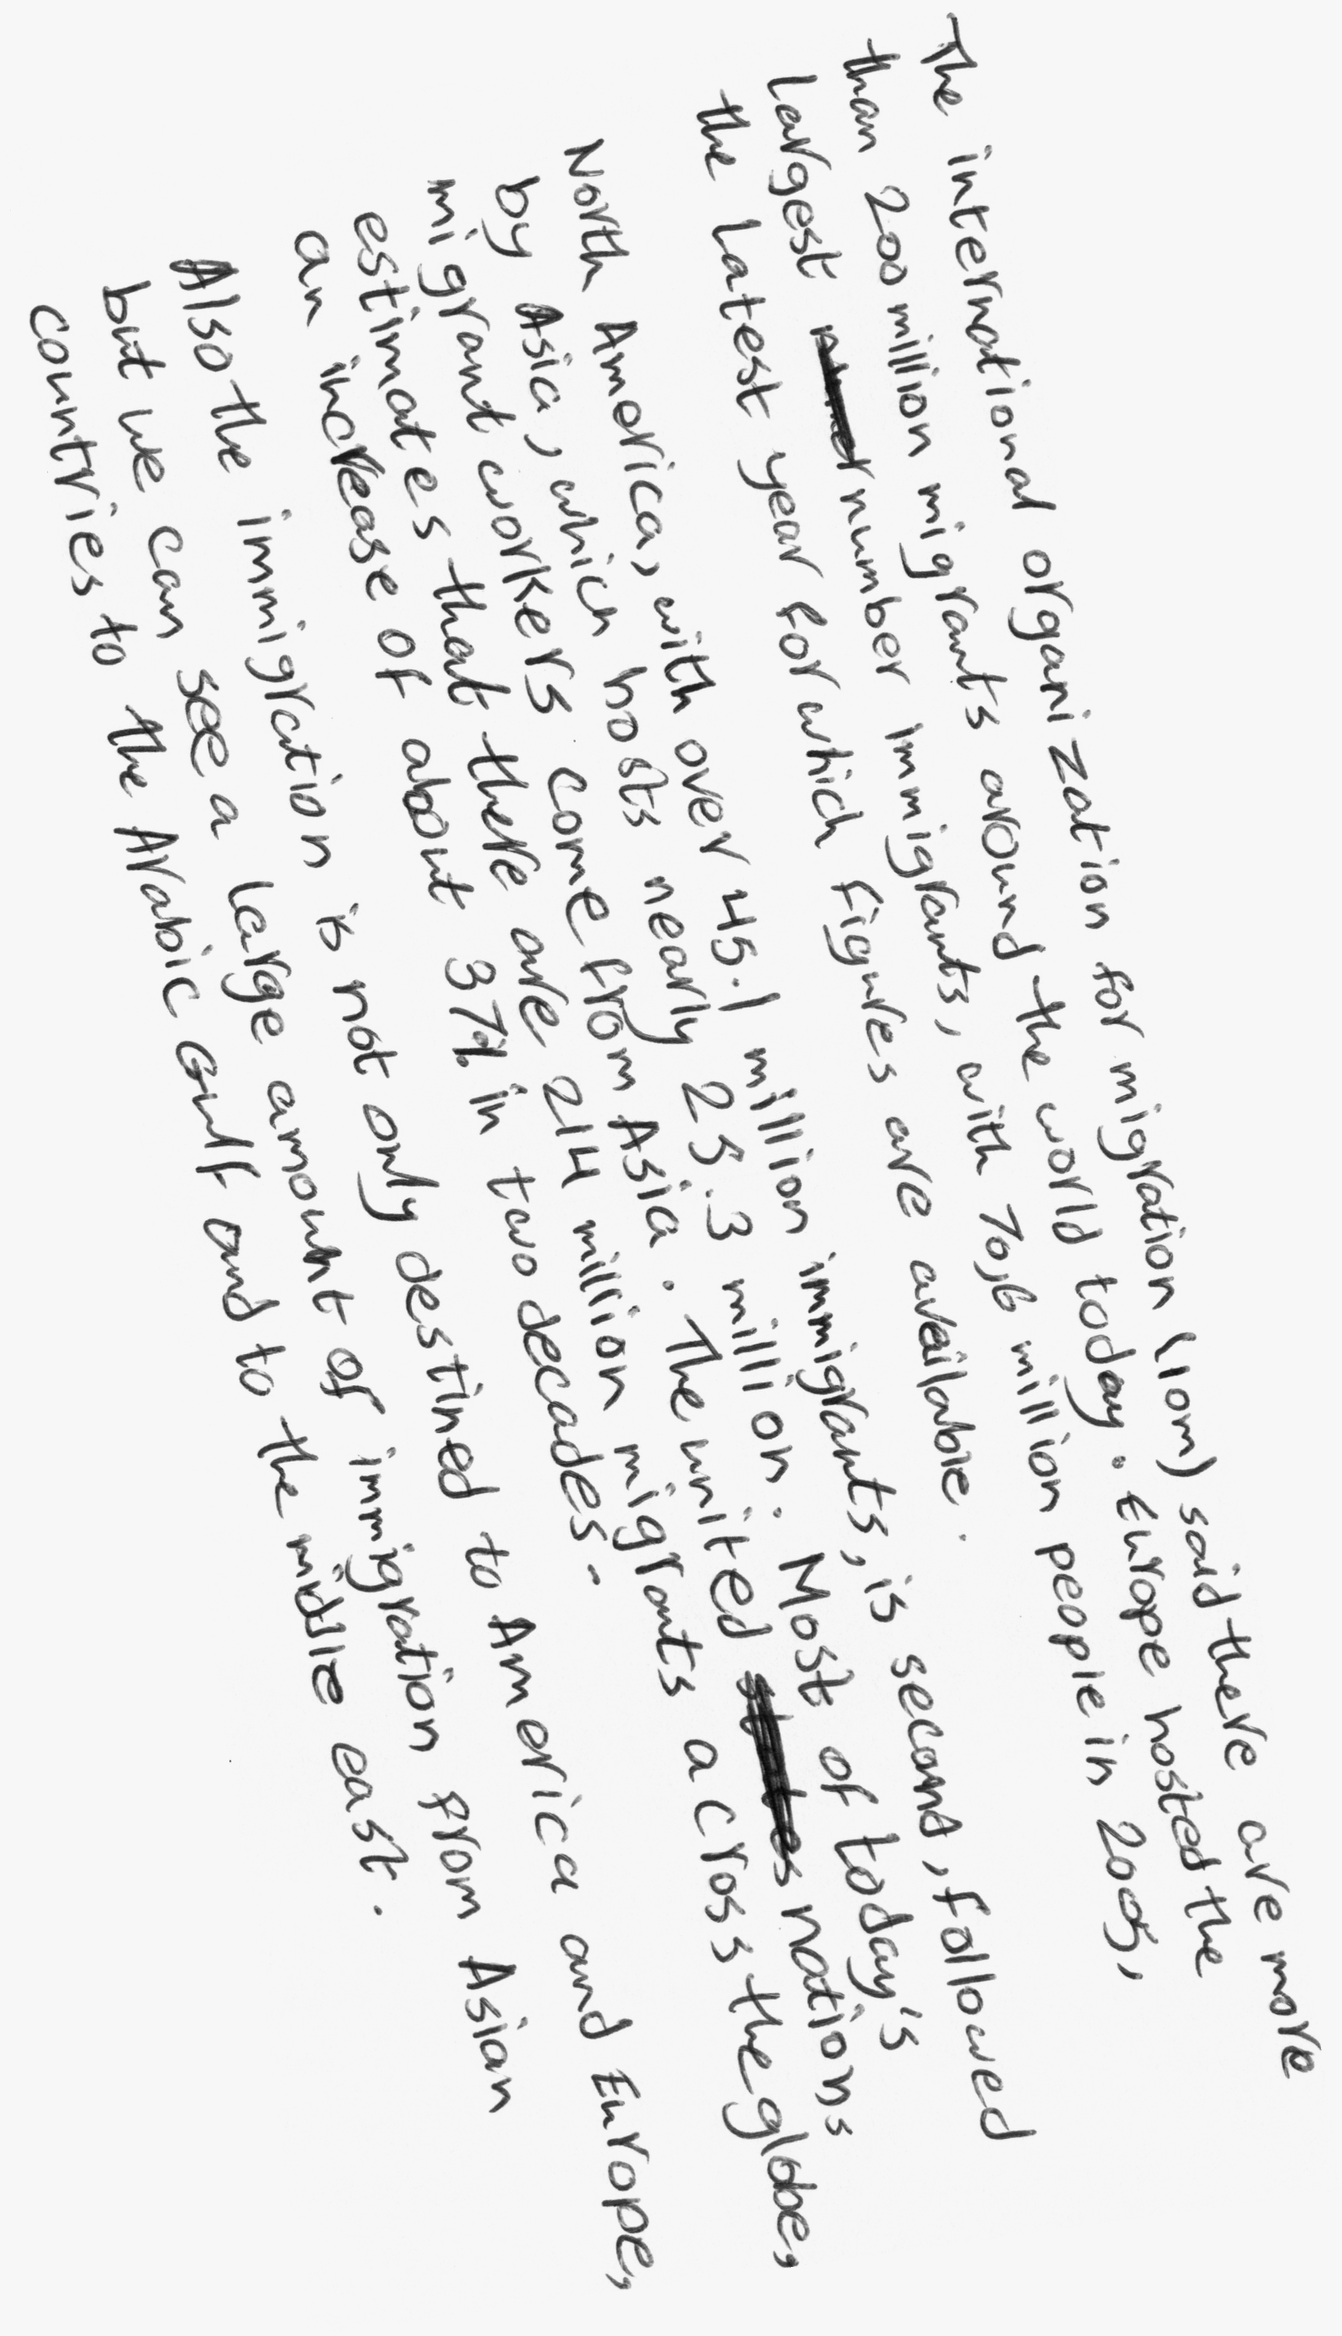 The international organization for migration (iom) said there are more
than 200 million migrants around the world today. Europe hosted the
largest number immigrants, with 70,6 million people in 2005,
the latest year for which figures are available.
North America, with over 45.1 million immigrants, is second, followed
by Asia, which hosts nearly 25.3 million. Most of today's
migrant workers come from Asia. The united nations
estimates that there are 214 million migrants across the globe,
an increase of about 37% in two decades.
Also the immigration is not only destined to America and Europe,
but we can see a large amount of immigration from Asian
countries to the Arabic Gulf and to the middle east.